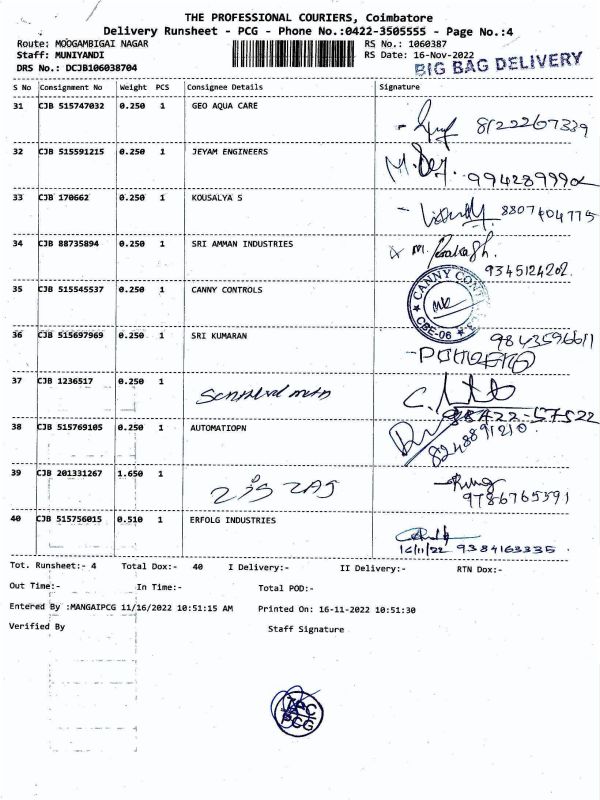 THE PROFESSIONAL COURIERS, Coimbatore
Delivery Runsheet - PCG - Phone No.:0422-3505555 - Page No.:4
Route: MOOGAMBIGAI NAGAR RS No.: 1060387
Staff: MUNIYANDI RS Date: 16-Nov-2022
DRS No.: DCJB106038704 BIG BAG DELIVERY
S No Consignment No Weight PCS Consignee Details Signature
31 CJB 515747032 0.250 1 GEO AQUA CARE
8122267339
32 CJB 515591215 0.250 1 JEYAM ENGINEERS
9942899902
33 CJB 170662 0.250 1 KOUSALYA S
8807404775
34 CJB 88735894 0.250 1 SRI AMMAN INDUSTRIES
M. Prakash.
9345124202.
35 CJB 515545537 0.250 1 CANNY CONTROLS
CANNY CONT
CBE-06
36 CJB 515697969 0.250 1 SRI KUMARAN
9843596611
37 CJB 1236517 0.250 1
98422-57522
38 CJB 515769105 0.250 1 AUTOMATIOPN
8248891210.
39 CJB 201331267 1.650 1 ZIG ZAG
9786765591
40 CJB 515756015 0.510 1 ERFOLG INDUSTRIES
16/11/22 9384163335.
Tot. Runsheet:- 4 Total Dox:- 40 I Delivery:- II Delivery:- RTN Dox:-
Out Time:- In Time:- Total POD:-
Entered By :MANGAIPCG 11/16/2022 10:51:15 AM Printed On: 16-11-2022 10:51:30
Verified By Staff Signature
TPC
PCG